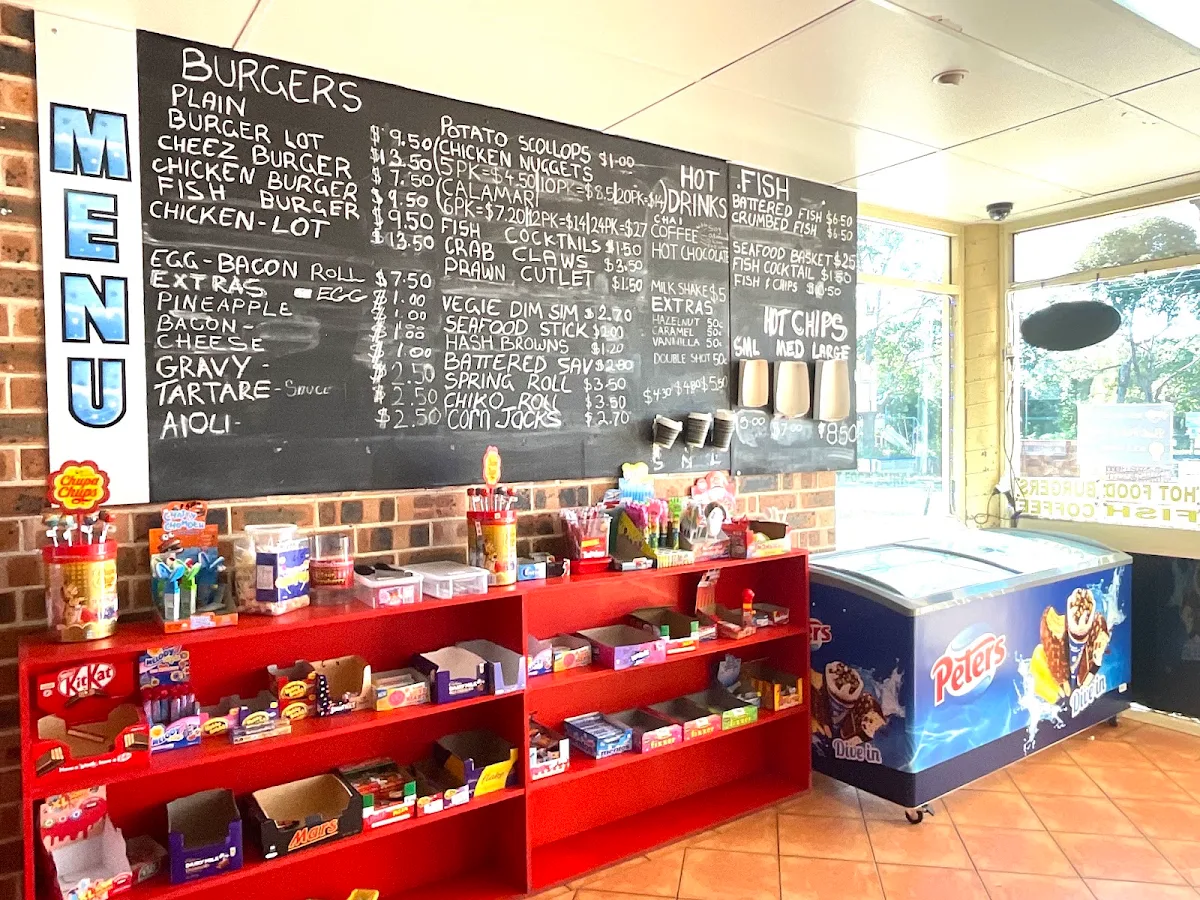 MENU
BURGERS
PLAIN $9.50
BURGER LOT $13.50
CHEEZ BURGER $7.50
CHICKEN BURGER $9.50
FISH BURGER $9.50
CHICKEN-LOT $13.50
EGG-BACON ROLL $7.50
EXTRAS - EGG $1.00
PINEAPPLE $1.00
BACON-
CHEESE $1.00
GRAVY - 2.50
TARTARE-Sauce $2.50
AIOLI- $2.50
POTATO SCOLLOPS $1.00
CHICKEN NUGGETS
(5PK=$4.50|10PK=$8.5|20PK=$14)
(CALAMARI
6PK=$7.20|12PK=$14|24PK=$27
FISH COCKTAILS $1.50
CRAB CLAWS $3.50
PRAWN CUTLET $1.50
VEGIE DIM SIM $2.70
SEAFOOD STICK $2.00
HASH BROWNS $1.20
BATTERED SAV $2.80
SPRING ROLL $3.50
CHIKO ROLL $3.50
CORN JACKS $2.70
HOT
DRINKS
CHAI
COFFEE
HOT CHOCOLATE
MILKSHAKE $5
EXTRAS
HAZELNUT 50c
CARAMEL 50c
VANNILLA 50c
DOUBLE SHOT 50c
$4.30 $4.80 $5.50
S M L
.FISH
BATTERED FISH $6.50
CRUMBED FISH $6.50
SEAFOOD BASKET $25
FISH COCKTAIL $1.50
FISH & CHIPS
HOT CHIPS
SML MED LARGE
5.00 $7.00 $8.50
Chupa
Chups
KitKat
Have a break, have a
MELODY
DAIRY MILK
Mars
Flake
mentos
fizzer
fizzer
fizzer
DAIRY MILK
Peters
Dive in
Dive in
HOT FOOD BURGERS
FISH COFFEE